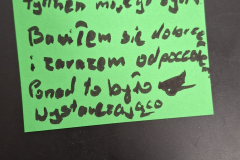 Bawiłem się dobrze
i zarazem odpoczą
Ponad to było
wystarczająco